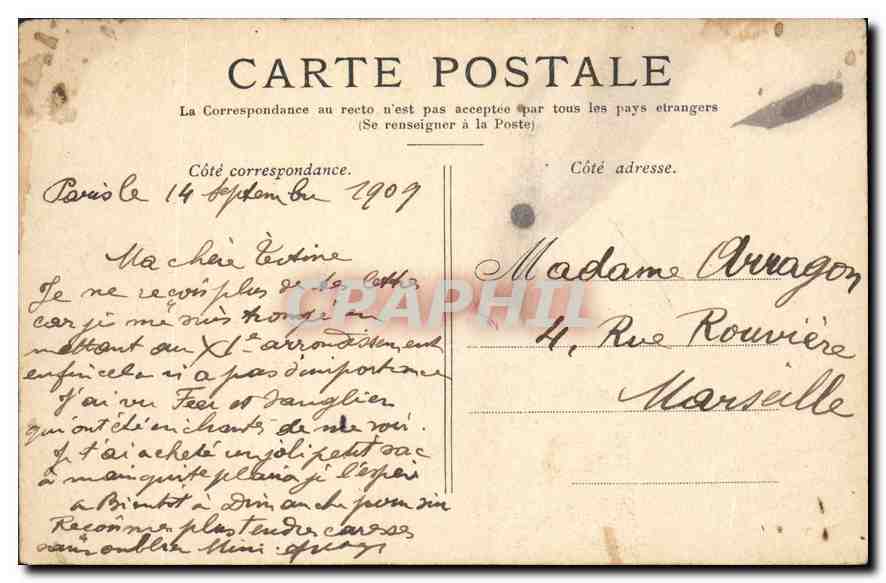 CARTE POSTALE
La Correspondance au recto n'est pas acceptée par tous les pays etrangers
(Se renseigner à la Poste)
Côté correspondance.
Côté adresse.
Paris le 14 Septembre 1909
Ma chère Titine
Je ne reçois plus de tes lettres
car je me suis trompé en
mettant au XIe arrondissement
enfin cela n'a pas d'importance
J'ai vu Feer et Sanglier
qui ont été enchantés de me voir.
Je t'ai acheté un joli petit sac
à main qui te plaira je l'espère
a Bientot à Dimanche
plus tendres caresses
sans oublier Mimi
Madame Arragon
4, Rue Rouvière
Marseille
CPAPHIL